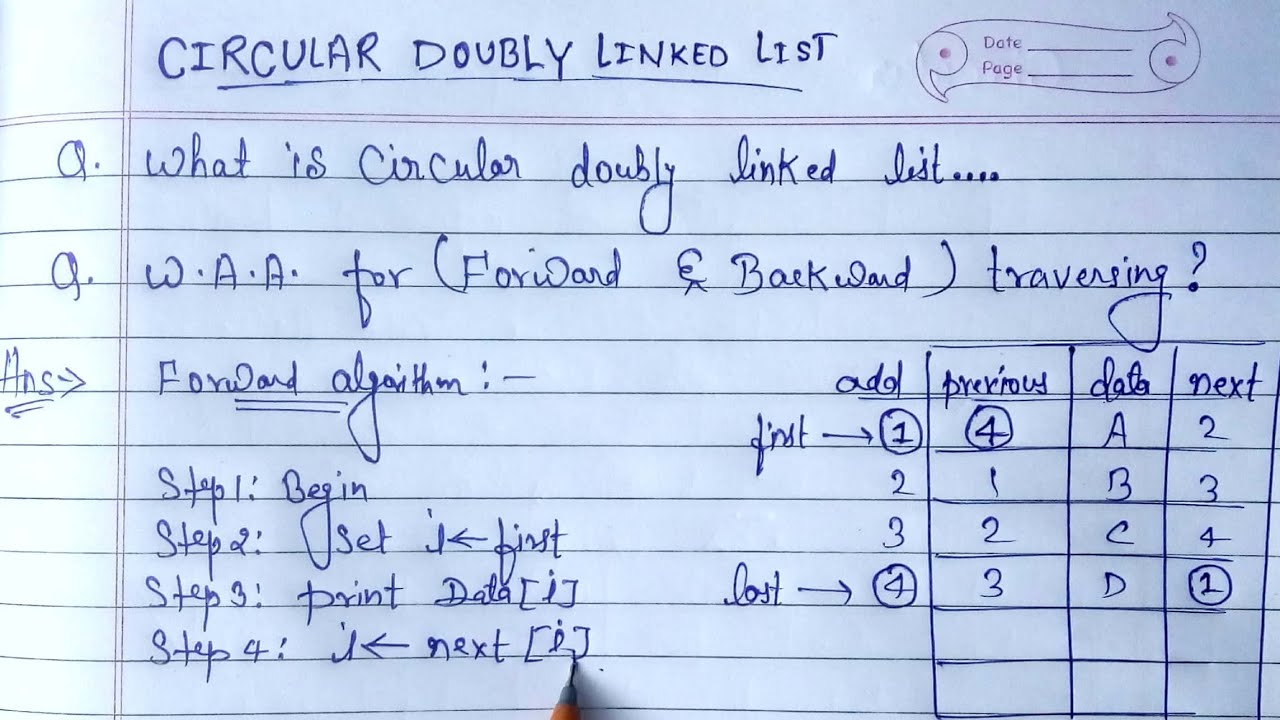 CIRCULAR DOUBLY LINKED LIST
Date
Page
Q. What is Circular doubly linked list....
Q. W.A.A. for (Forward & Backward) traversing?
Ans-> Forward algorithm :-
add previous data next
first → 1 4 A 2
Step 1: Begin
2 1 B 3
Step 2: Set i ← first
3 2 C 4
Step 3: print Data [i]
last → 4 3 D 1
Step 4: i ← next [i]